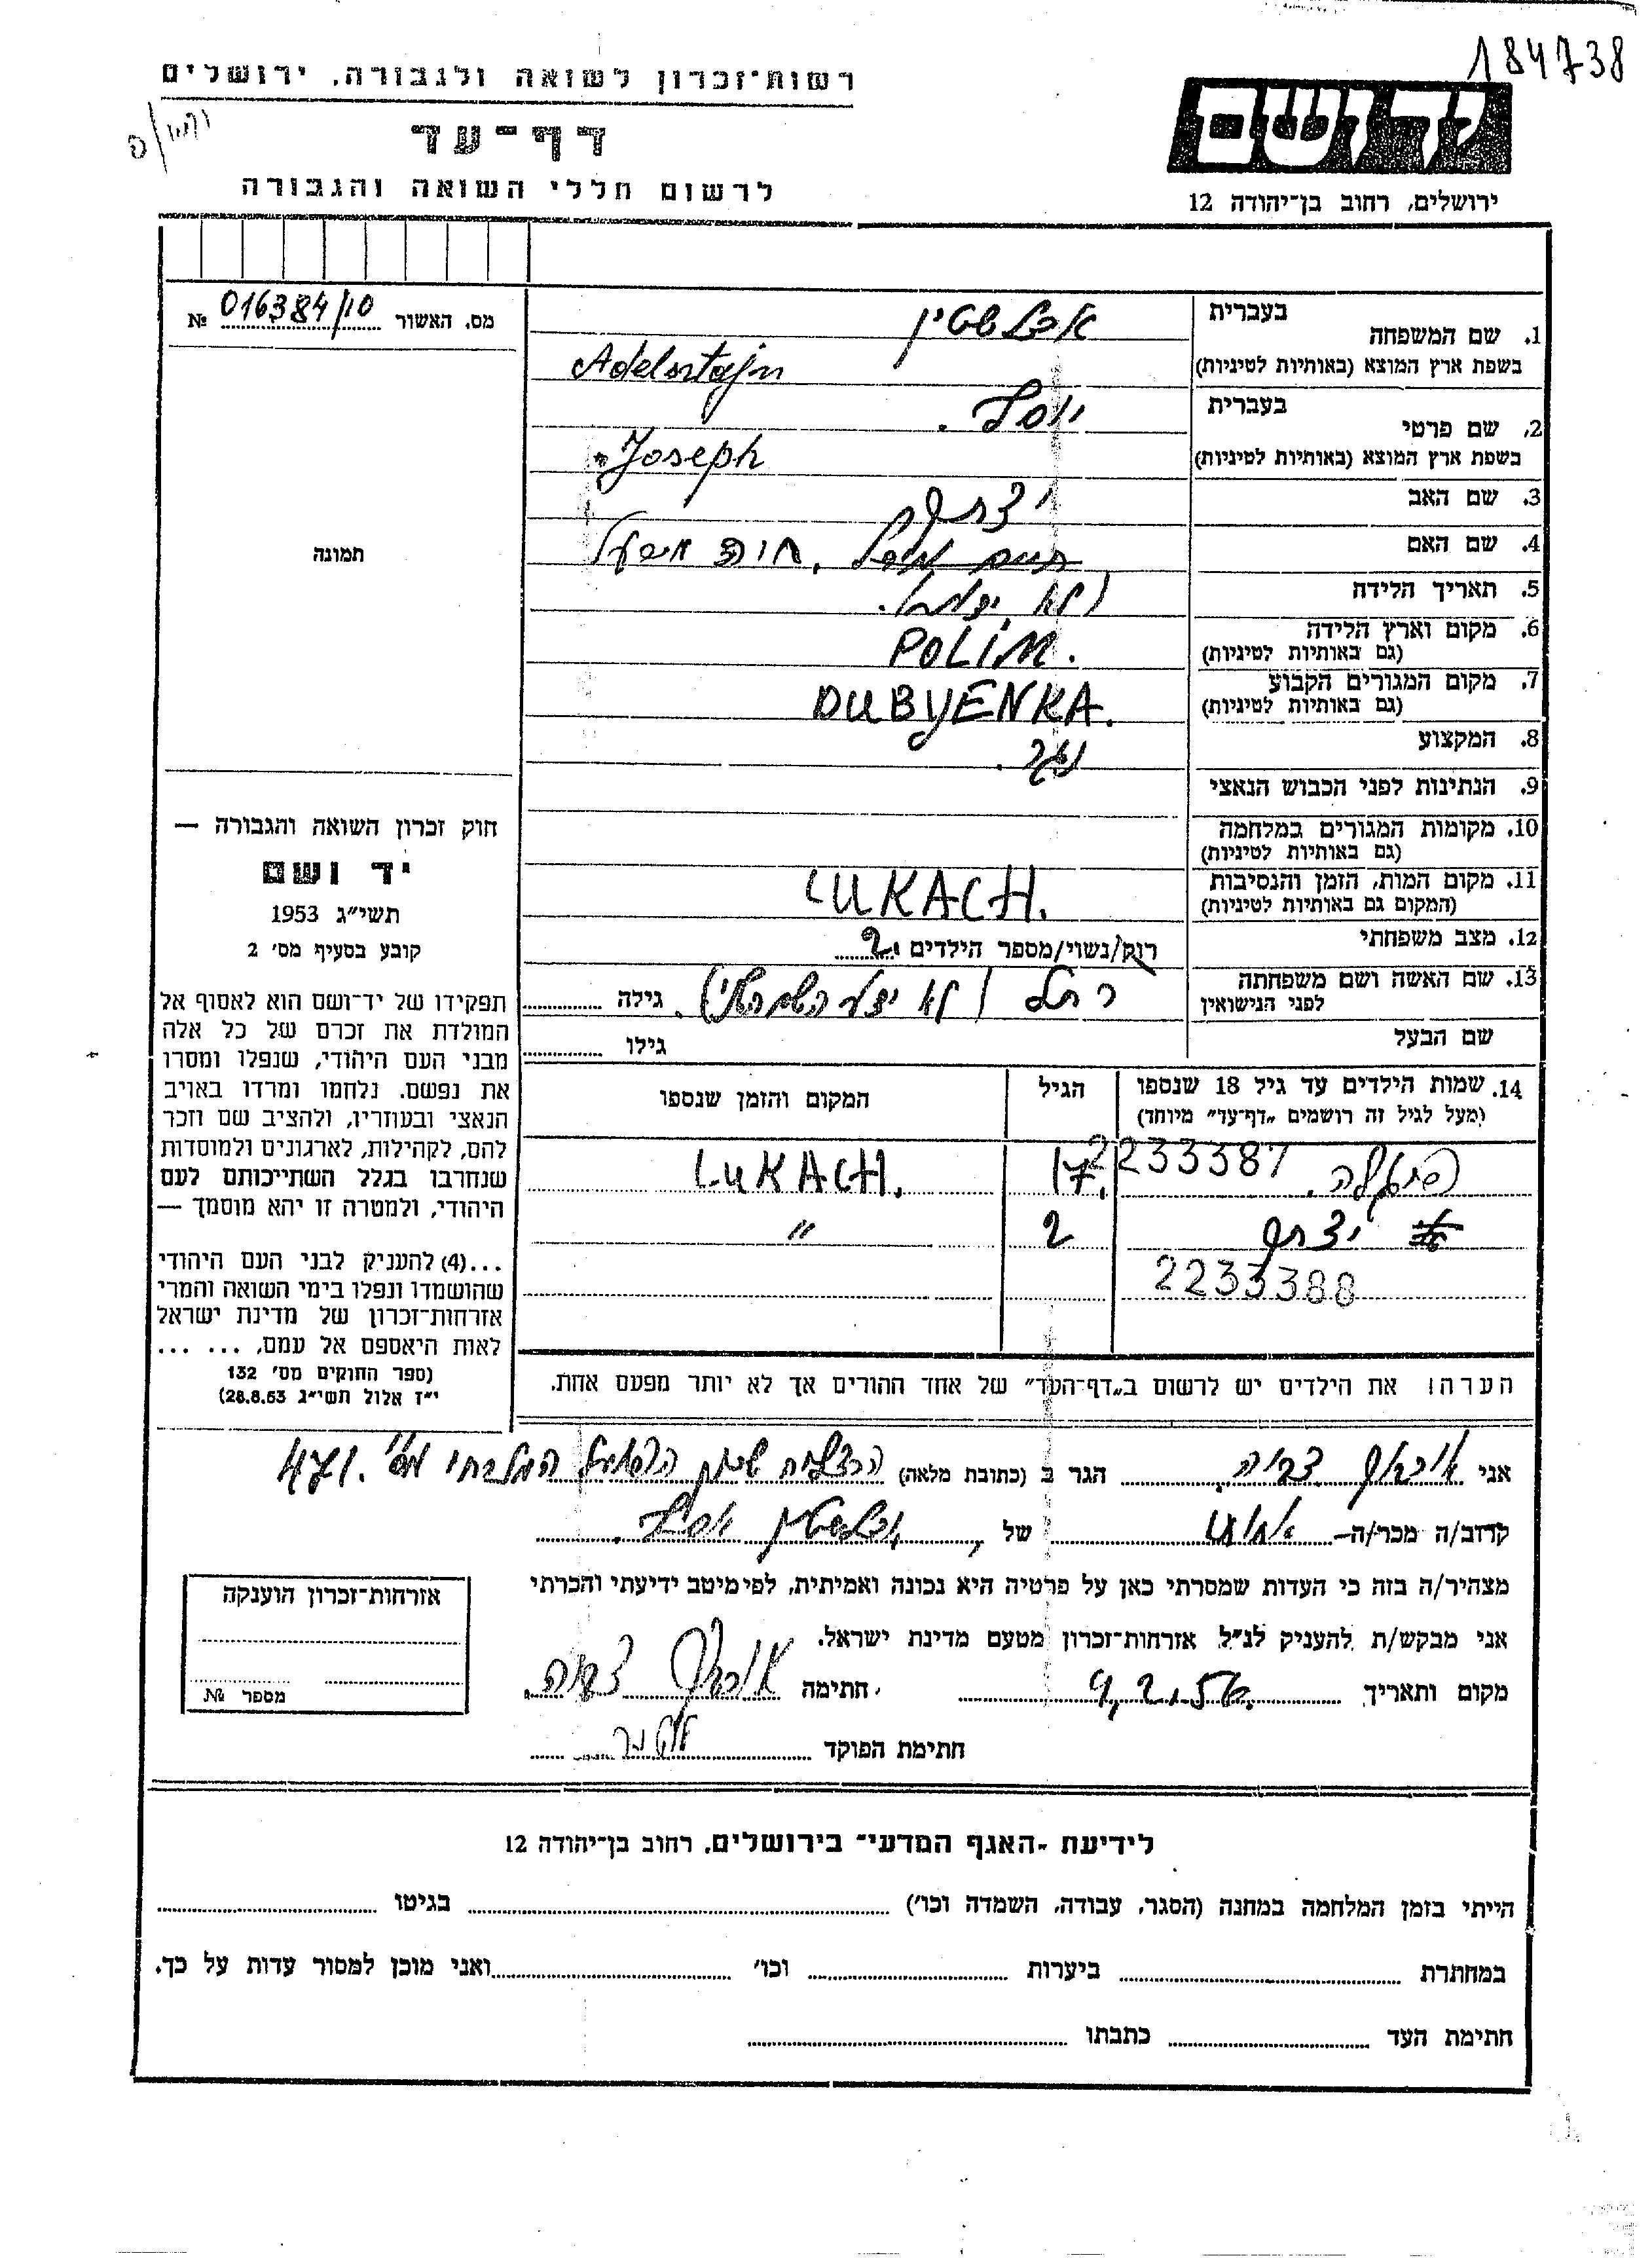 184738
רשות־זכרון לשואה ולגבורה, ירושלים
יד ושם
דף־עד
לרשום חללי השואה והגבורה
ירושלים, רחוב בן־יהודה 12
מס. האשור 016384/10 №
תמונה
1. שם המשפחה בעברית אדלשטין
בשפת ארץ המוצא (באותיות לטיניות) Adelsztajn
2. שם פרטי בעברית יוסף.
בשפת ארץ המוצא (באותיות לטיניות) Joseph
3. שם האב יצחק
4. שם האם חוה
5. תאריך הלידה (לא
6. מקום וארץ הלידה POLIN.
(גם באותיות לטיניות)
7. מקום המגורים הקבוע DUBYENKA.
(גם באותיות לטיניות)
8. המקצוע נגר.
9. הנתינות לפני הכבוש הנאצי
10. מקומות המגורים במלחמה
(גם באותיות לטיניות)
11. מקום המות, הזמן והנסיבות LUKACH.
(המקום גם באותיות לטיניות)
12. מצב משפחתי רוק/נשוי/מספר הילדים 2.
13. שם האשה ושם משפחתה רחל (לא גילה
לפני הנישואין
שם הבעל גילו
14. שמות הילדים עד גיל 18 שנספו הגיל המקום והזמן שנספו
(מעל לגיל זה רושמים "דף־עד" מיוחד)
2233387 17. LUKACH.
יצחק 2 "
2233388
הערה! את הילדים יש לרשום ב"דף־העד" של אחד ההורים אך לא יותר מפעם אחת.
חוק זכרון השואה והגבורה —
יד ושם
תשי"ג 1953
קובע בסעיף מס' 2
תפקידו של יד־ושם הוא לאסוף אל
המולדת את זכרם של כל אלה
מבני העם היהודי, שנפלו ומסרו
את נפשם. נלחמו ומרדו באויב
הנאצי ובעוזריו, ולהציב שם וזכר
להם, לקהילות, לארגונים ולמוסדות
שנחרבו בגלל השתייכותם לעם
היהודי, ולמטרה זו יהא מוסמך —
...(4) להעניק לבני העם היהודי
שהושמדו ונפלו בימי השואה והמרי
אזרחות־זכרון של מדינת ישראל
לאות היאספם אל עמם, ... ...
(ספר החוקים מס' 132
י"ז אלול תשי"ג 28.8.53)
אני הגר ב (כתובת מלאה) הרצליה שיכון מס' 471.
קרוב/ה מכר/ה— אחות של אדלשטין יוסף.
מצהיר/ה בזה כי העדות שמסרתי כאן על פרטיה היא נכונה ואמיתית, לפי מיטב ידיעתי והכרתי
אני מבקש/ת להעניק לנ"ל אזרחות־זכרון מטעם מדינת ישראל.
מקום ותאריך 9.2.56 חתימה
חתימת הפוקד
אזרחות־זכרון הוענקה
מספר №
לידיעת ־האגף המדעי־ בירושלים, רחוב בן־יהודה 12
הייתי בזמן המלחמה במחנה (הסגר, עבודה, השמדה וכו') בגיטו
במחתרת ביערות וכו' ואני מוכן למסור עדות על כך.
חתימת העד כתבתו